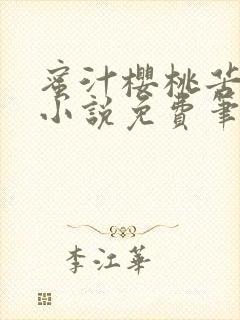 蜜汁櫻桃苦
小說免費筆
李江華